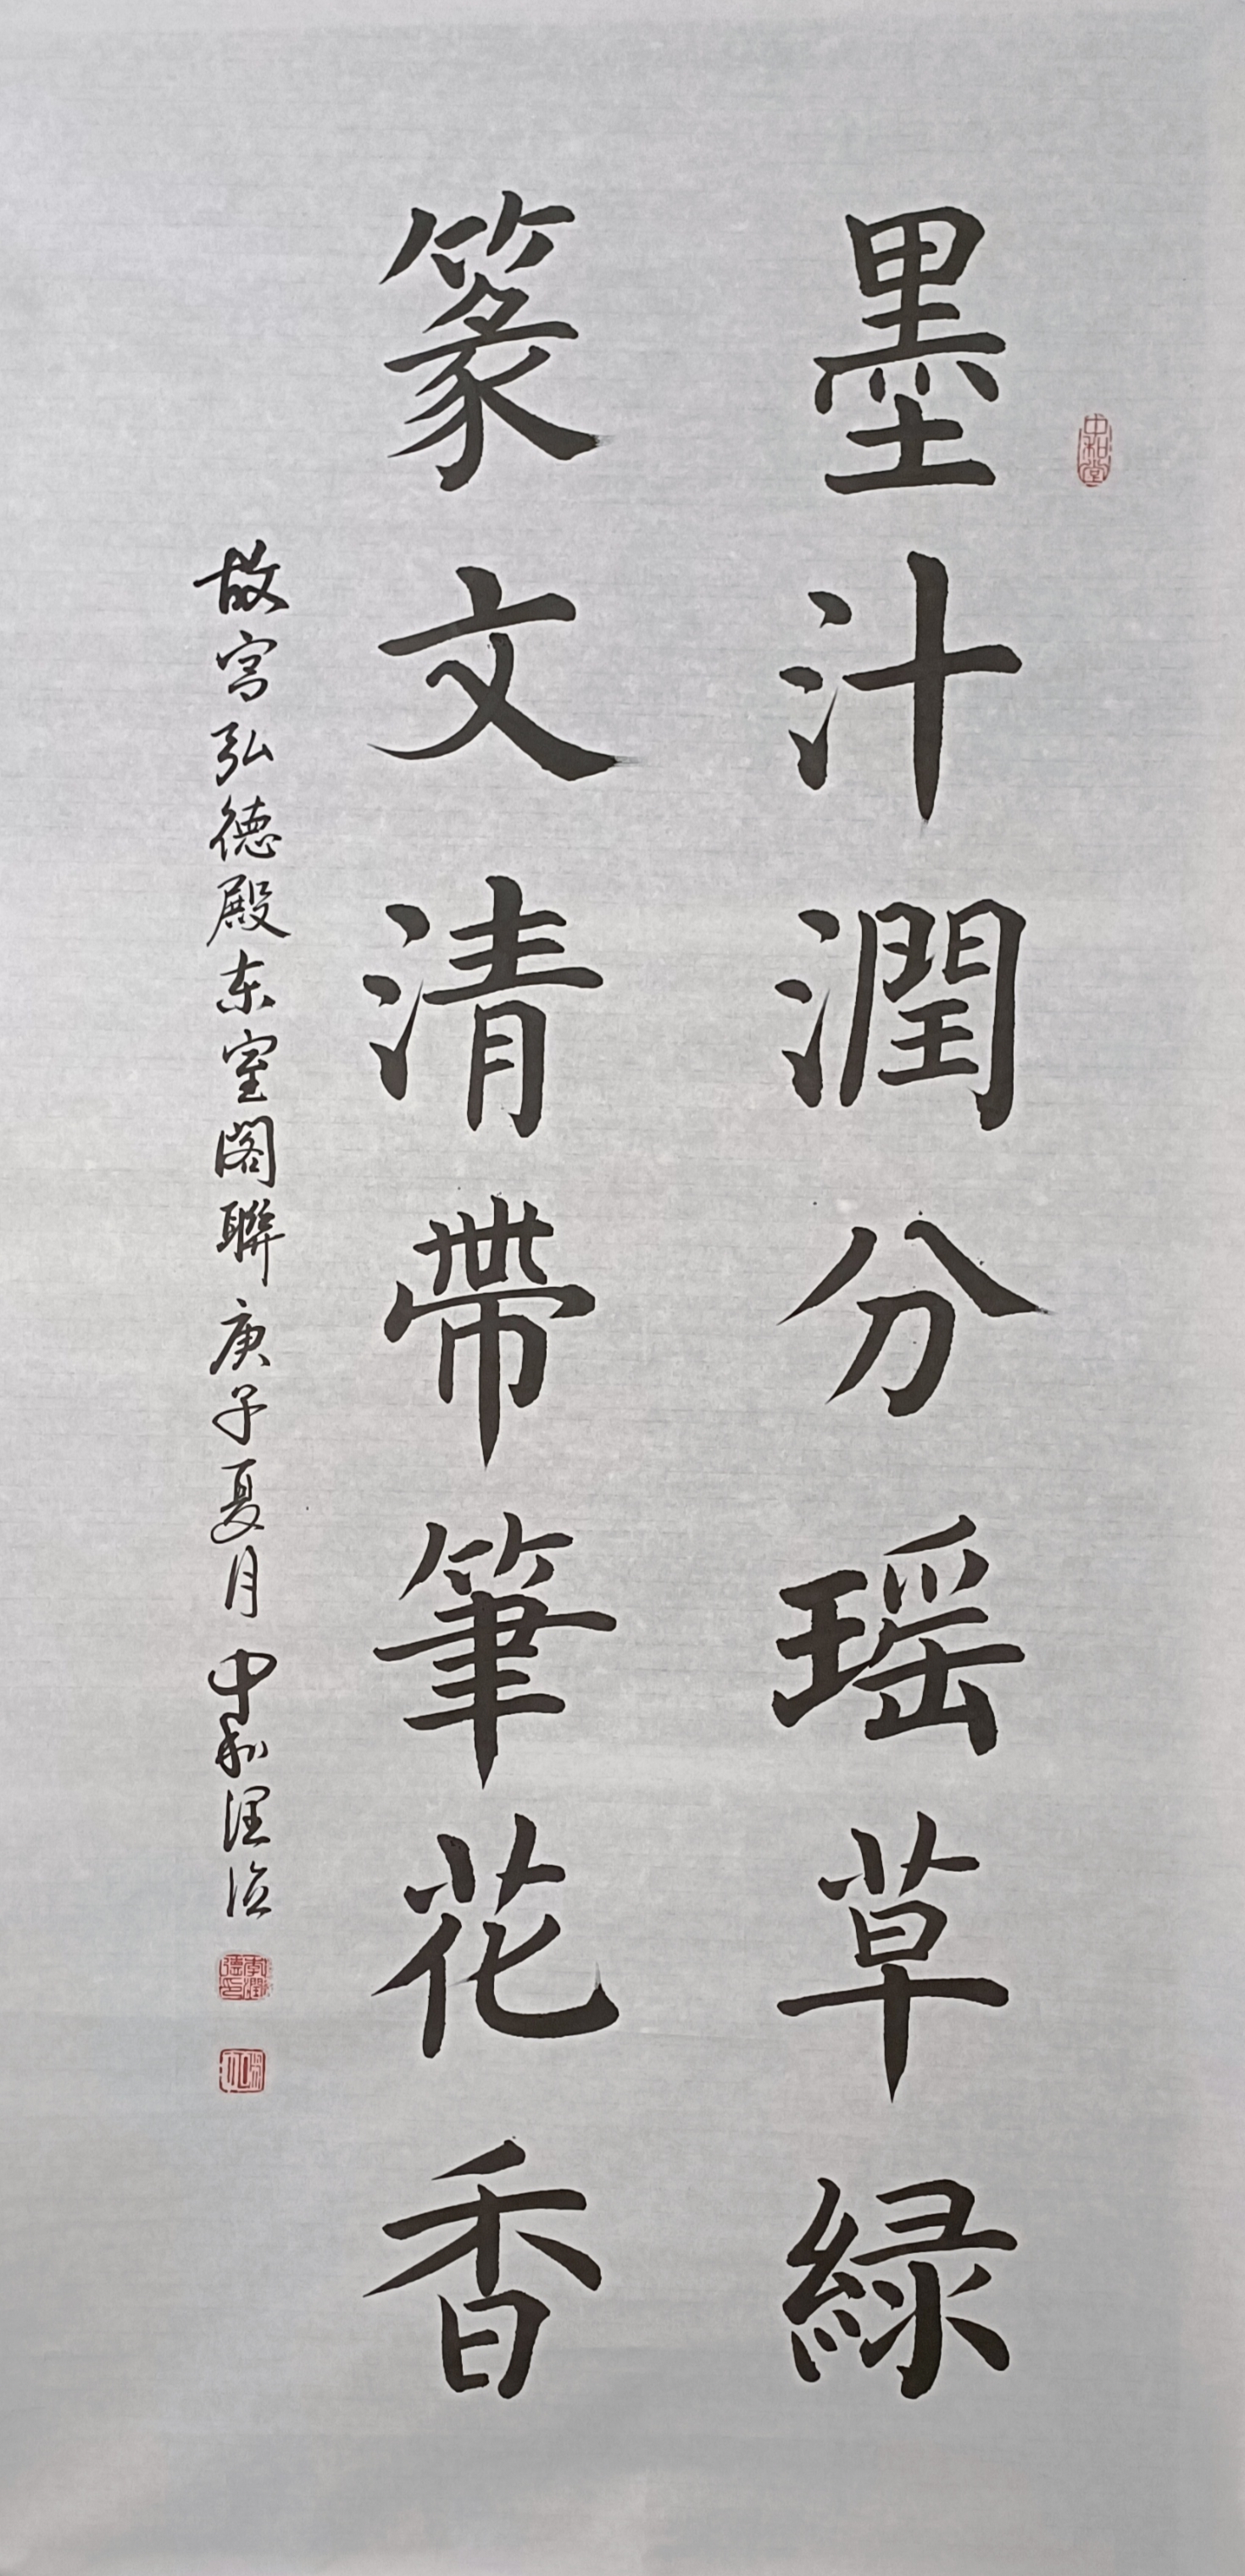 墨汁潤分瑶草緑
篆文清帶筆花香
故宫弘德殿东室閣聯庚子夏月中和潤
中和堂